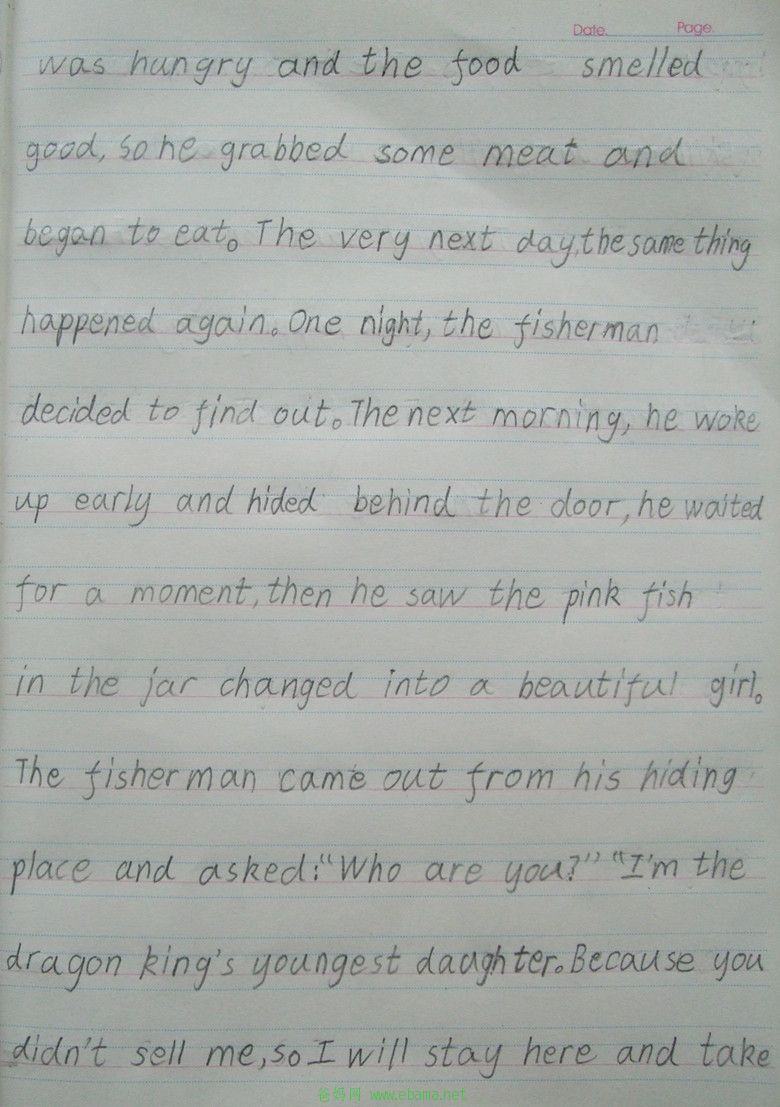 Date. Page.
was hungry and the food smelled
good, so he grabbed some meat and
began to eat。The very next day, the same thing
happened again。One night, the fisherman
decided to find out。The next morning, he woke
up early and hided behind the door, he waited
for a moment, then he saw the pink fish
in the jar changed into a beautiful girl。
The fisherman came out from his hiding
place and asked:“Who are you?” “I'm the
dragon king's youngest daughter。Because you
didn't sell me, so I will stay here and take
爸妈网 www.ebama.net